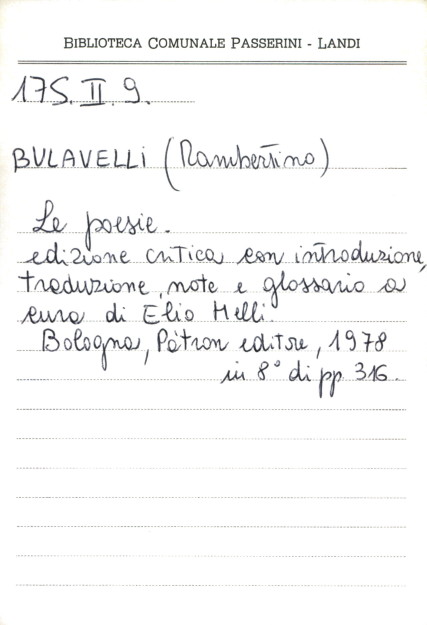 BIBLIOTECA COMUNALE PASSERINI - LANDI
175. II. 9.
BULAVELLI (Rambertino)
Le poesie.
edizione critica con introduzione,
traduzione, note e glossario a
cura di Elio Melli.
Bologna, Pàtron editore, 1978
in 8° di pp. 316.